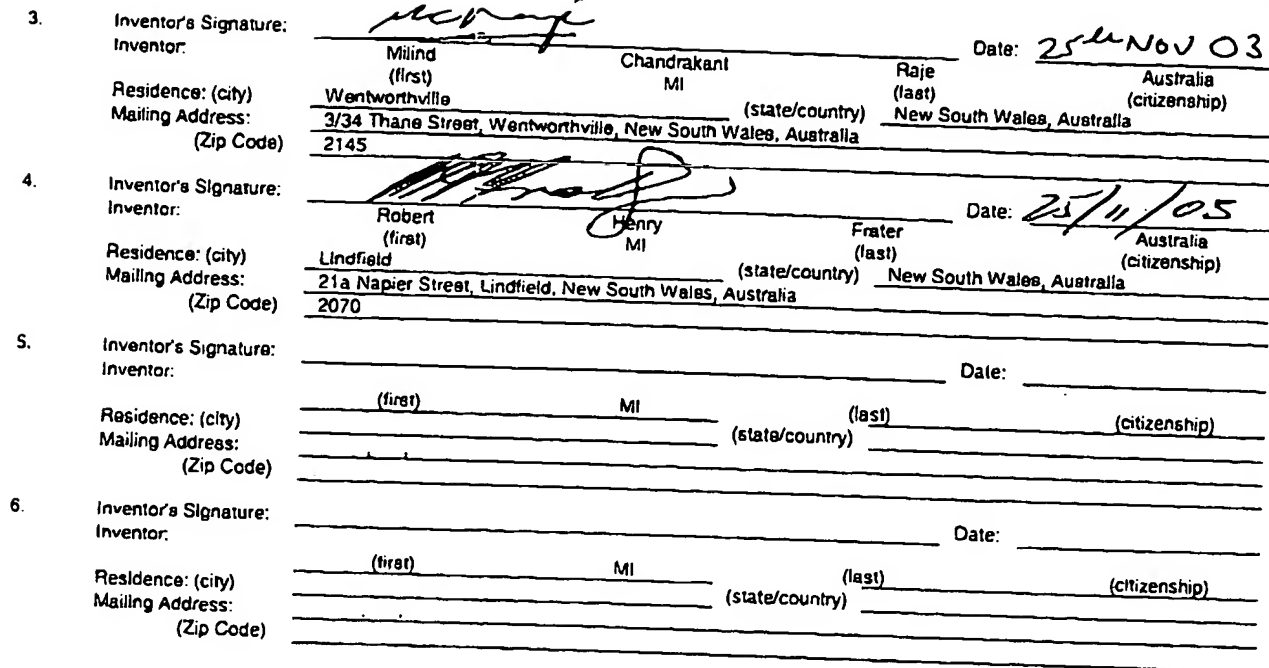 3. Inventor's Signature:
Inventor: Date: 25th NOV 03
Milind Chandrakant Raje Australia
(first) MI (last) (citizenship)
Residence: (city) Wentworthville (state/country) New South Wales, Australia
Mailing Address: 3/34 Thane Street, Wentworthville, New South Wales, Australia
(Zip Code) 2145
4. Inventor's Signature:
Inventor: Date: 25/11/05
Robert Henry Frater Australia
(first) MI (last) (citizenship)
Residence: (city) Lindfield (state/country) New South Wales, Australia
Mailing Address: 21a Napier Street, Lindfield, New South Wales, Australia
(Zip Code) 2070
5. Inventor's Signature:
Inventor: Date:
(first) MI (last) (citizenship)
Residence: (city) (state/country)
Mailing Address:
(Zip Code)
6. Inventor's Signature:
Inventor: Date:
(first) MI (last) (citizenship)
Residence: (city) (state/country)
Mailing Address:
(Zip Code)